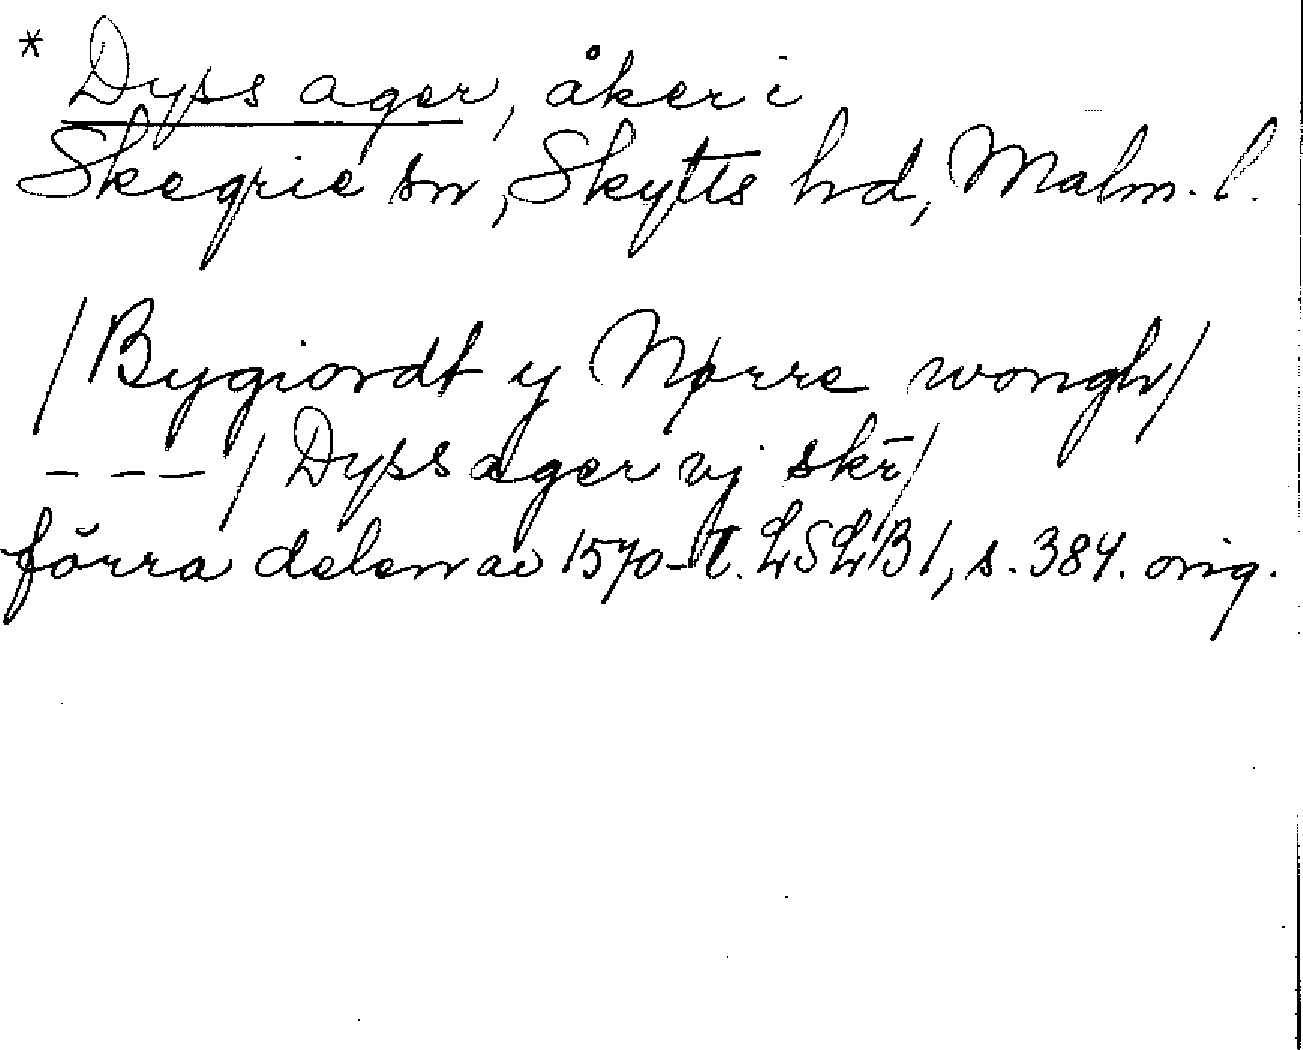 * Dyss ager, åker i
Skegrie sn, Skytts hd, Malm. l.
/Bygiordt y Nørre wongh/
- - - / Dyss ager vj skr̄/
förra delen av 1570-t. LSLB 1, s. 384. orig.